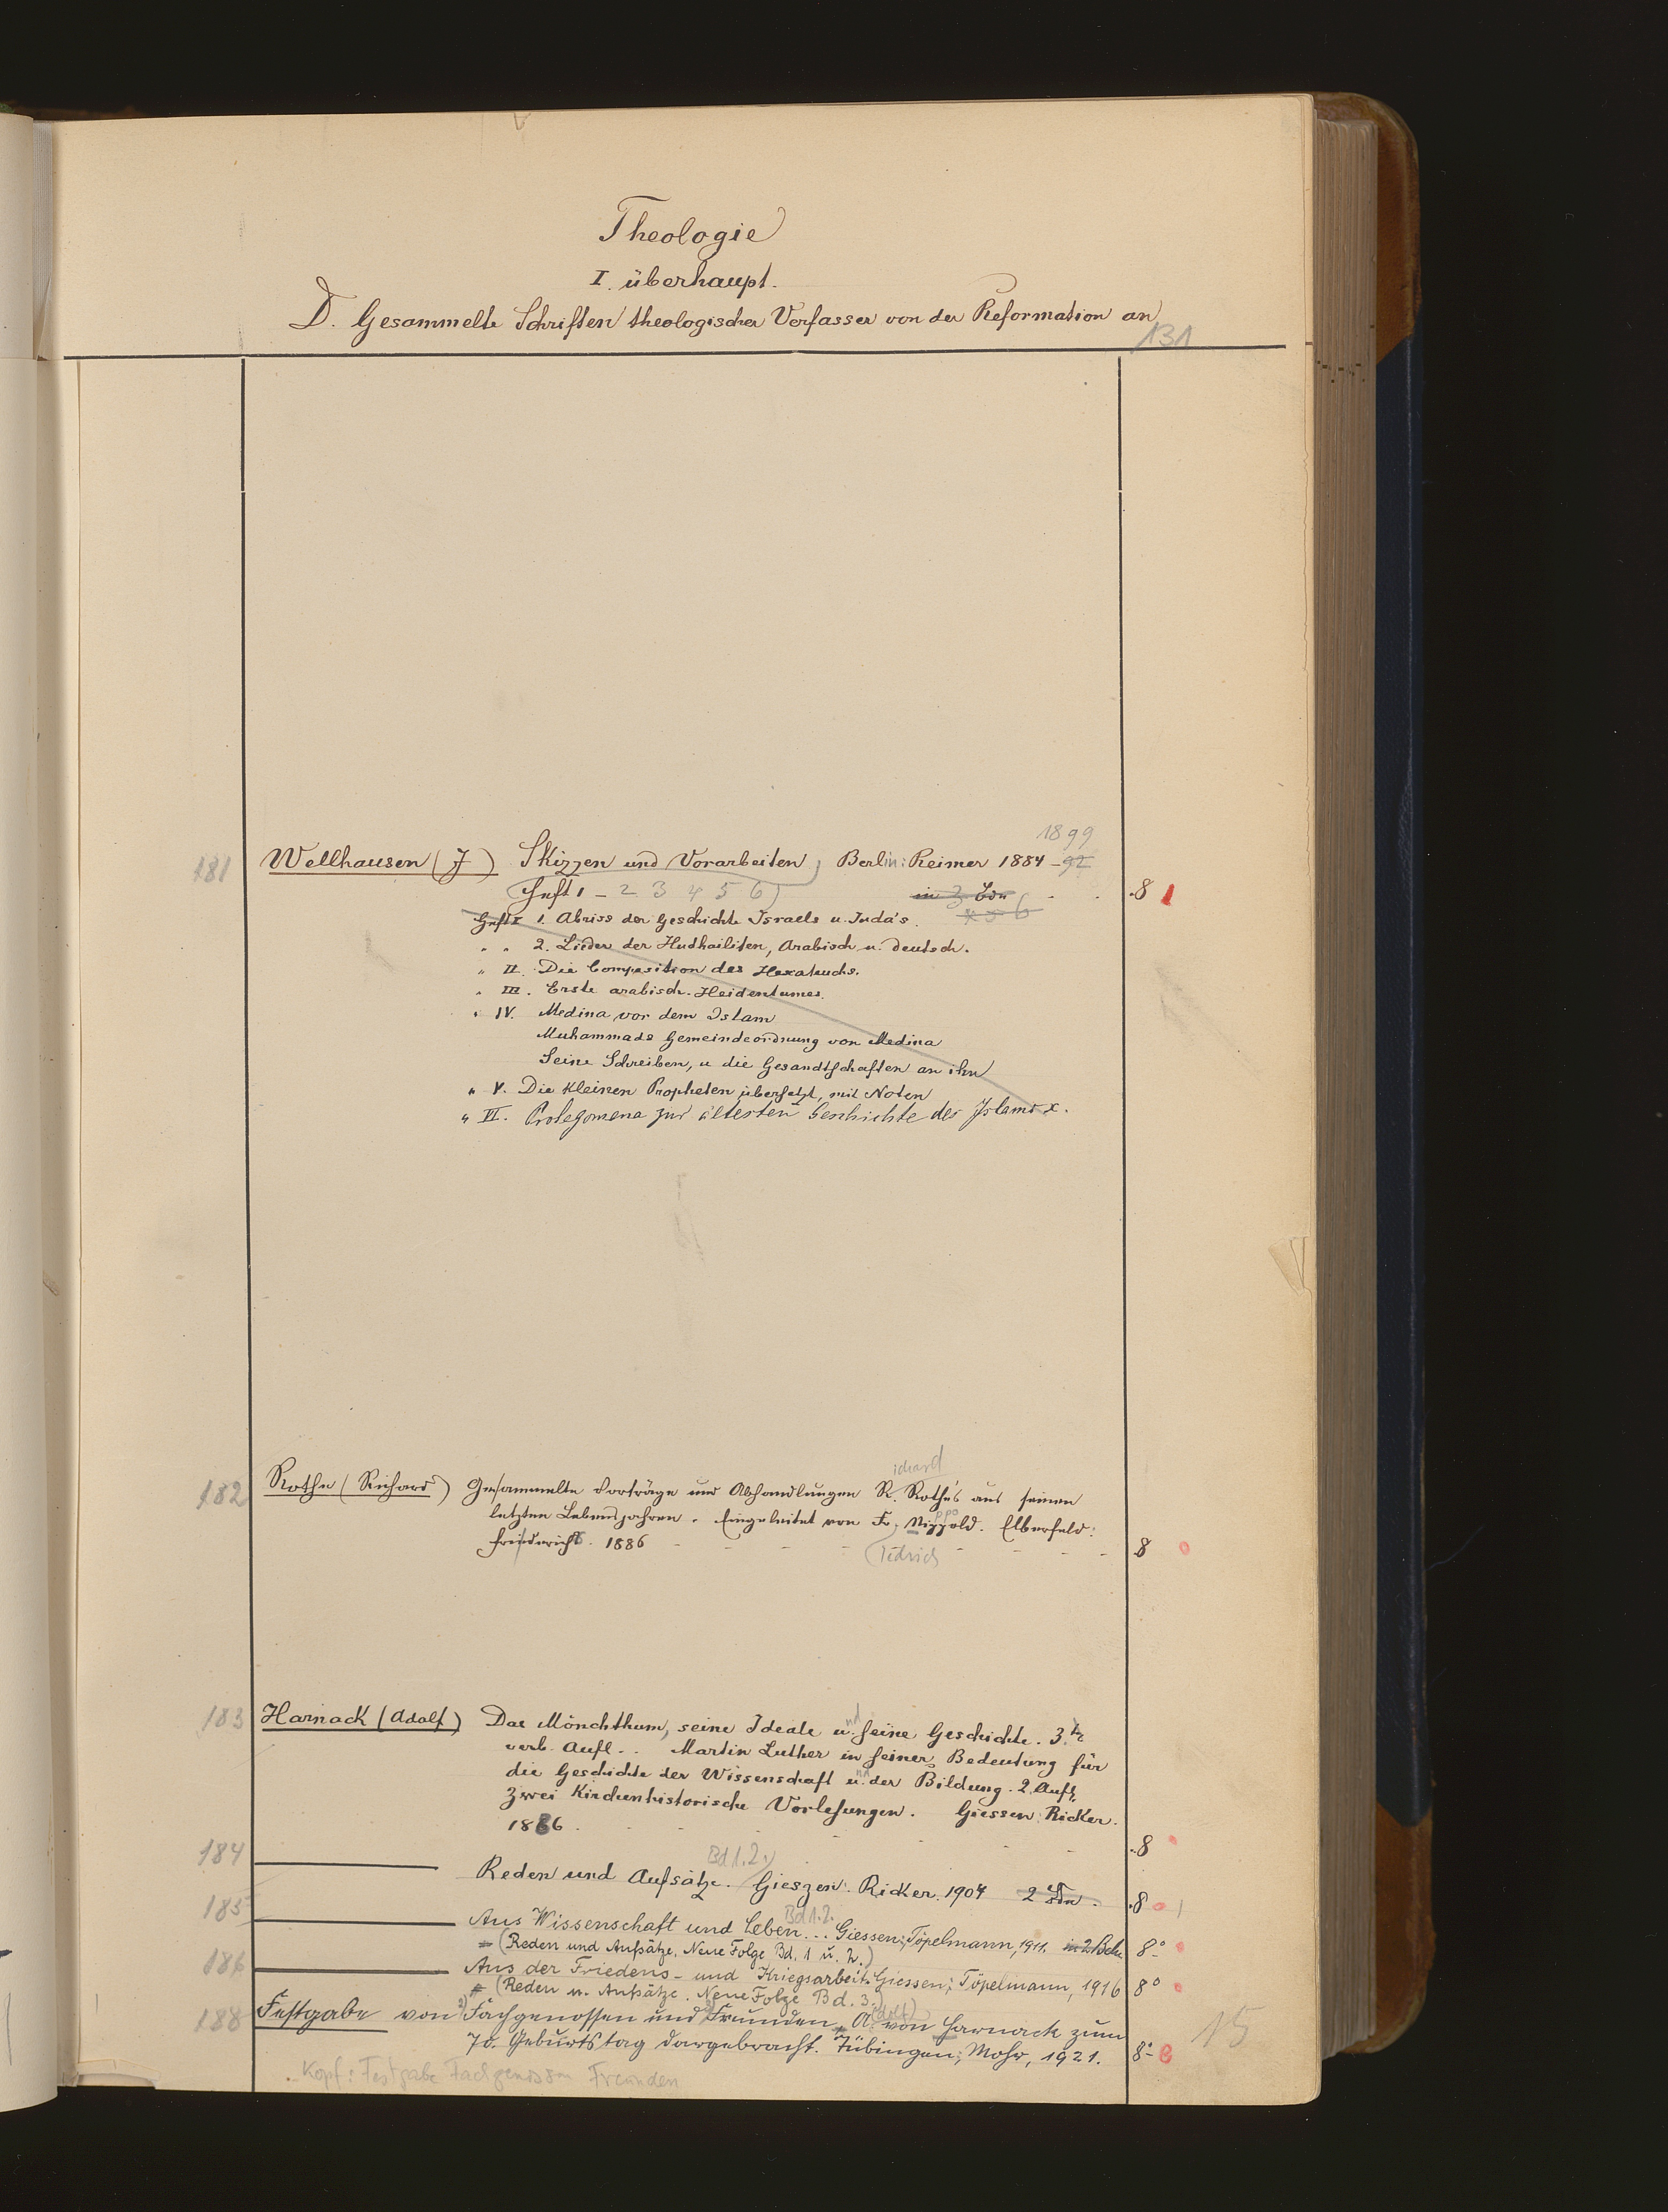 Theologie
I. überhaupt.
D. Gesammelte Schriften theologischer Verfasser von der Reformation an
131
1899
181 Wellhausen (J) Skizzen und Vorarbeiten, Berlin: Reimer 1884-92
(Heft 1-2 3 4 5 6) in 3 Bdn . . 8 1
Heft I 1. Abriss der Geschichte Israels u. Juda's.
" " 2. Lieder der Hudhailiten, Arabisch u. deutsch.
" II. Die Composition des Hexateuchs.
" III. Erste arabisch. Heidentumes.
" IV. Medina vor dem Islam
Muhammads Gemeindeordnung von Medina
Seine Schreiben, u die Gesandtschaften an ihn
" V. Die kleinen Propheten übersetzt, mit Noten
" VI. Prolegomena zur ältesten Geschichte des Islams x.
ichard
182 Rothe (Richard) Gesammelte Vorträge und Abhandlungen R. Rothe's aus seinen
letzten Lebensjahren. Eingeleitet von Fr. Nippold. Elberfeld:
Friderichs. 1886 - - - - (iedrich - - - 8
183 Harnack (Adolf) Das Mönchthum, seine Ideale und seine Geschichte. 3te
verb. Aufl.. Martin Luther in seiner Bedeutung für
die Geschichte der Wissenschaft und der Bildung. 2. Aufl.
Zwei Kirchenhistorische Vorlesungen. Giessen: Ricker.
1886. - - - - 8
184 Bd 1.2.
Reden und Aufsätze. Gieszen: Ricker. 1904 2 Bdn. 8
185 Bd 1.2.
Aus Wissenschaft und Leben... Giessen: Töpelmann, 1911. in 2 Bdn. 8°
= (Reden und Aufsätze. Neue Folge Bd. 1 u. 2.)
186 Aus der Friedens- und Kriegsarbeit. Giessen: Töpelmann, 1916 8°
= (Reden u. Aufsätze. Neue Folge Bd. 3.)
188 Festgabe von Fachgenossen und Freunden A(dolf) von Harnack zum
70. Geburtstag dargebracht. Tübingen: Mohr, 1921. 8°
15
Kopf: Festgabe Fachgenossen Freunden